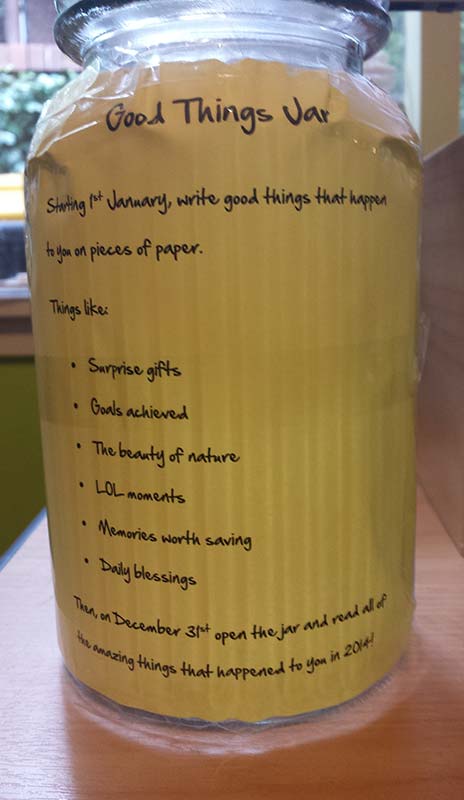 Good Things Jar
Starting 1st January, write good things that happen
to you on pieces of paper.
Things like:
• Surprise gifts
• Goals achieved
• The beauty of nature
• LOL moments
• Memories worth saving
• Daily blessings
Then, on December 31st open the jar and read all of
the amazing things that happened to you in 2014!